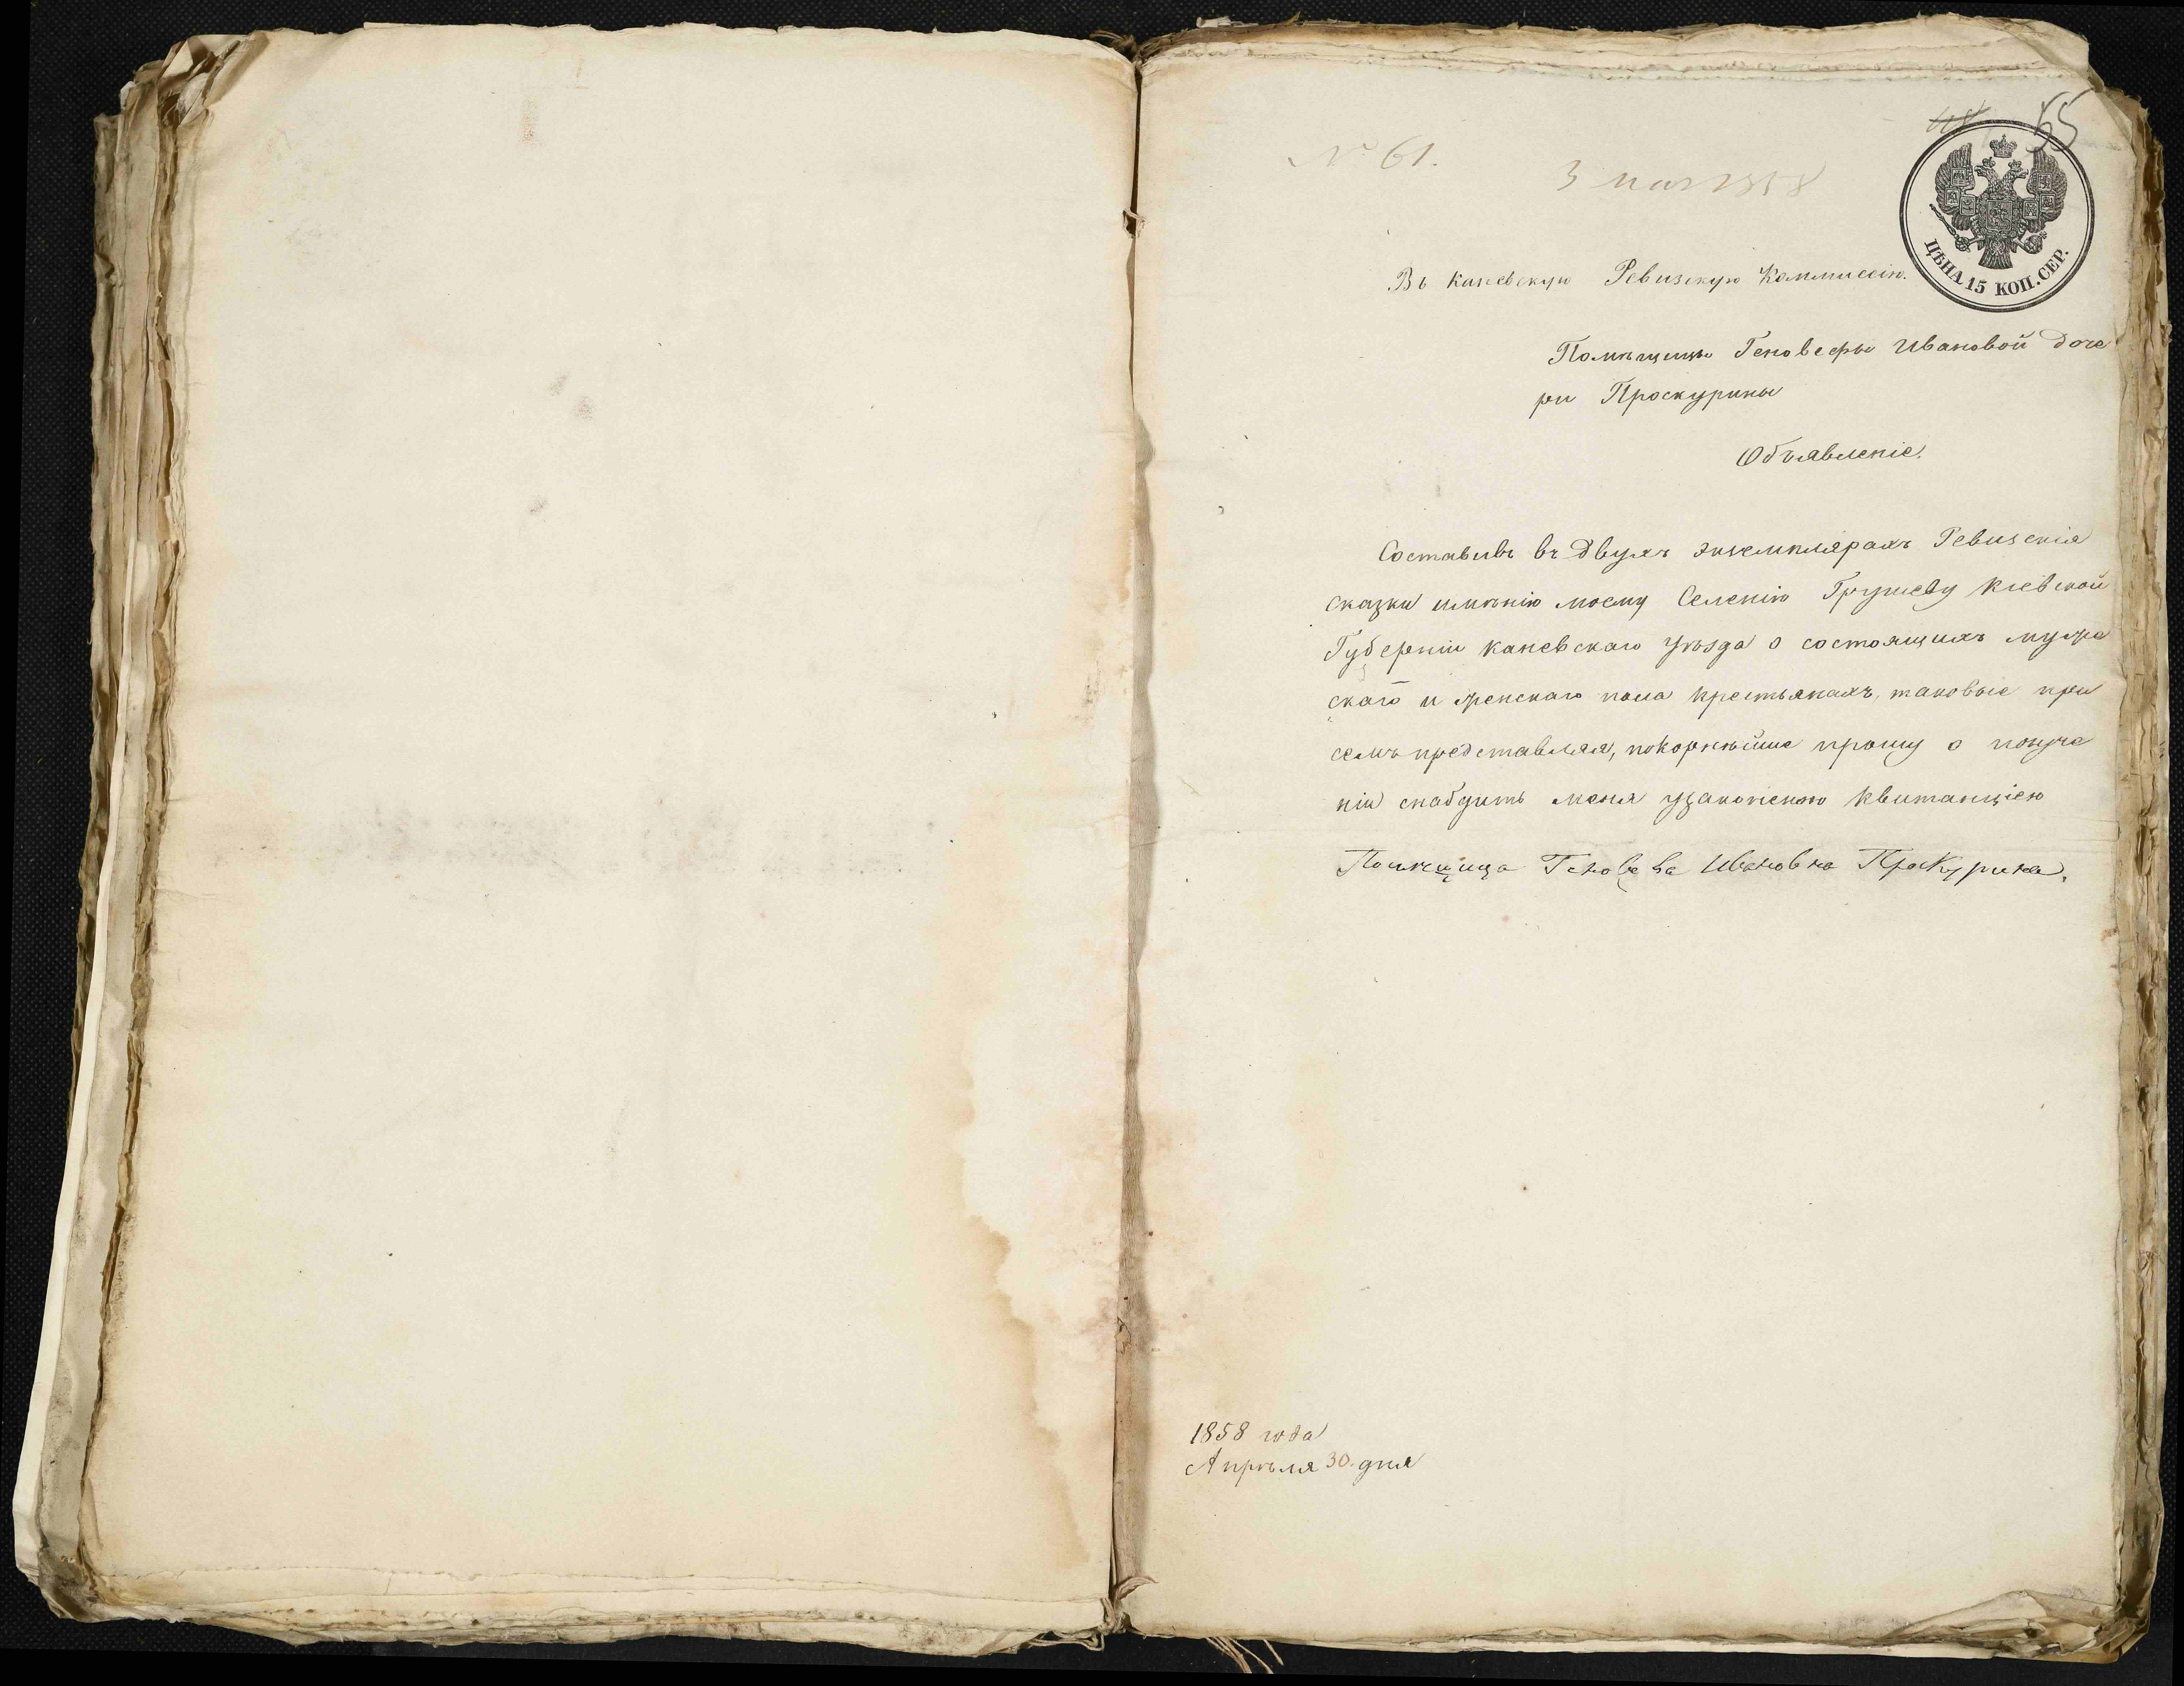 55
№ 61.
3 мая 1858
ЦѢНА 15 КОП. СЕР.
Въ Каневскую Ревизскую Коммиссію.
Помѣщицы Геновефы Ивановой доче
ри Проскурины
Объявленіе.
Составивъ въ двухъ экземплярахъ Ревизскія
сказки имѣнію моему Селенію Грушеву Кіевской
Губерніи Каневскаго уѣзда о состоящихъ муже
скаго и женскаго пола крестьянахъ, таковые при
семъ представляя, покорнѣйше прошу о
ніи снабдить меня узаконеною квитанціею
Помѣщица Геновева Ивановна Проскурина.
1858 года
Апрѣля 30 дня